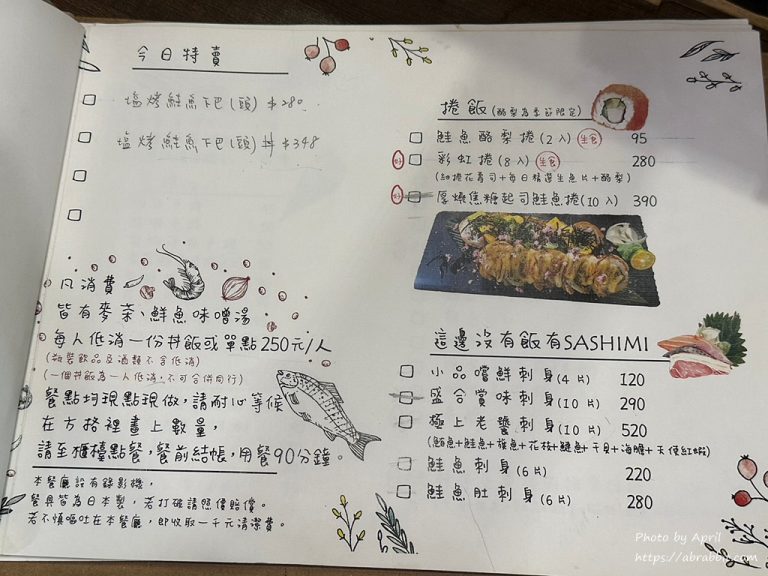 今日特賣
塩烤鮭魚下巴(頭) $280.
塩烤鮭魚下巴(頭)丼 $348
凡消費
皆有麥茶、鮮魚味噌湯
每人低消一份丼飯或單點250元/人
(瓶裝飲品及酒類不含低消)
(一個丼飯為一人低消,不可合併同行)
餐點均現點現做,請耐心等候
在方格裡畫上數量,
請至櫃檯點餐,餐前結帳,用餐90分鐘。
本餐廳設有錄影機,
餐具皆為日本製,若打破請照價賠償。
若不慎嘔吐在本餐廳,即收取一千元清潔費。
捲飯(酪梨為季節限定)
鮭魚酪梨捲(2入) 生食 95
彩虹捲(8入) 生食 280
(細捲花壽司+每日精選生魚片+酪梨)
厚燒焦糖起司鮭魚捲(10入) 390
這邊沒有飯有SASHIMI
小品嚐鮮刺身(4片) 120
盛合賞味刺身(10片) 290
極上老饕刺身(10片) 520
(鮪魚+鮭魚+旗魚+花枝+鰱魚+干貝+海膽+天使紅蝦)
鮭魚刺身(6片) 220
鮭魚肚刺身(6片) 280
Photo by April
https://abrabbit.com